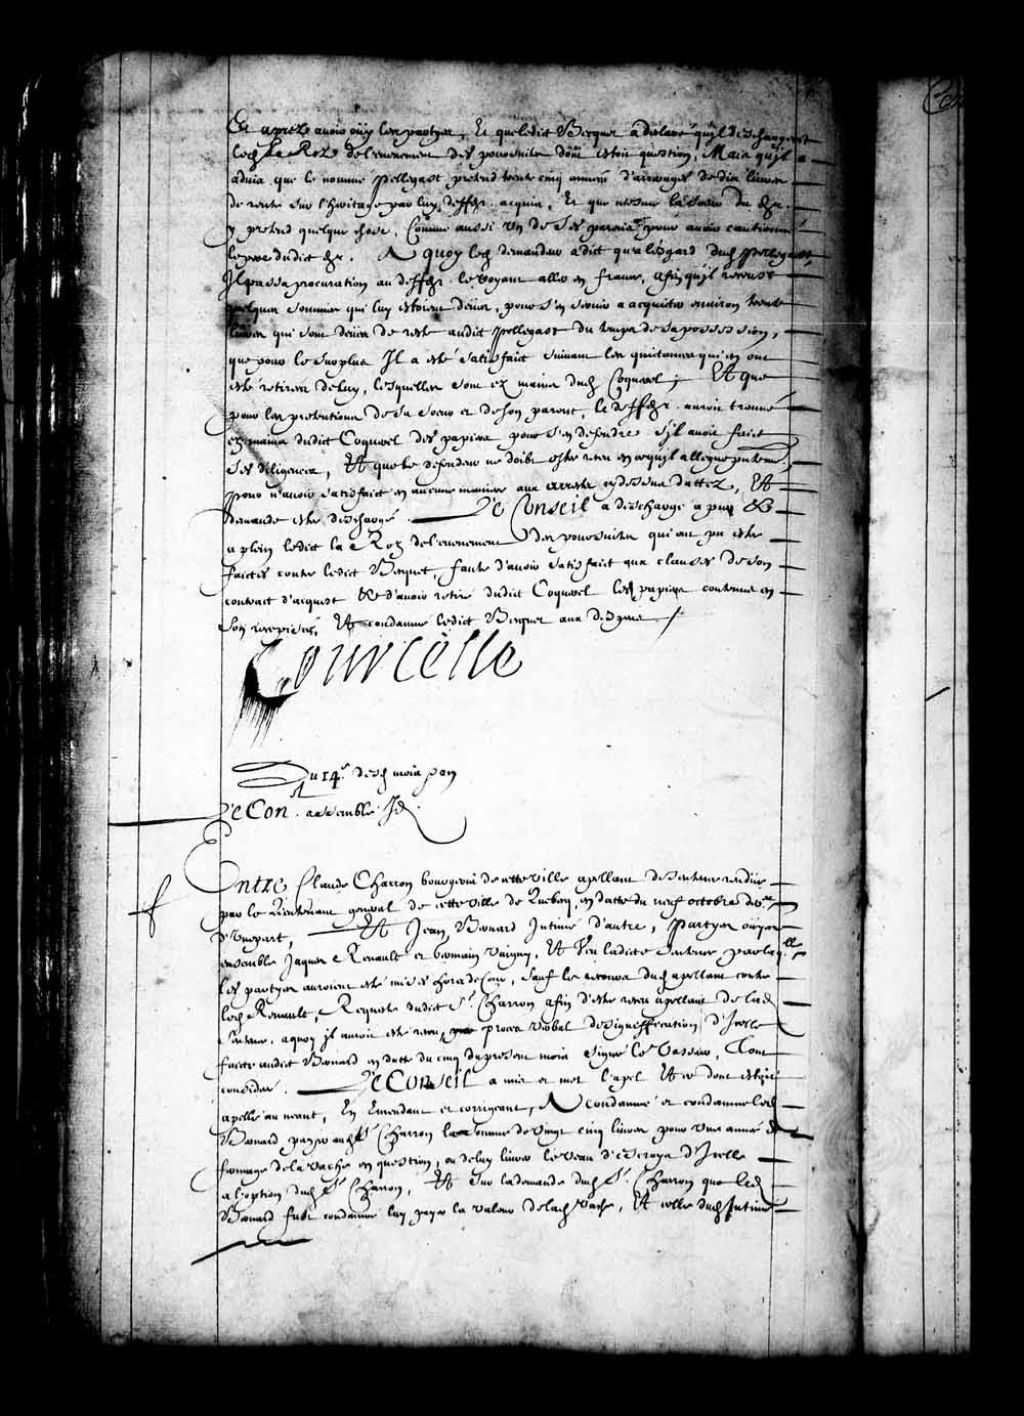 Et apres avoir ouy les partyes, Et que ledict Becquet a declaré qu'il deschargeroit
led. Le Roy de l'evenement des poursuites dont estoit question, Mais qu'il a
advis que le nommé Pelleyast pretend trente cinq années d'arrerages de dix livres
de rente sur l'heritage par luy deffr. acquis, Et que mesme la soeur du Sr.
y pretend quelque chose, Comme aussi un de ses parens pour avoir cautionné
le pere dudict Sr. A quoy led. demandeur a dict qu'a l'esgard dud. Pelleyast,
Il passa procuration au deffr. le voyant aller en france, afin qu'il receust
quelques sommes qui luy estoient deües, pour s'en servir a acquiter environ trente
livres qui sont deües de reste audict Pelleyast du temps de sa possession,
que pour le surplus Il a esté satisfaict suivant les quictances qui en ont
esté retirées de luy, lesquelles sont ez mains dud. Coquerel; Et que
pour les pretentions de sa soeur et de son parent, le deffr. auroit trouvé
ez mains dudict Coquerel des papiers pour s'en defendre s'il avoit faict
ses diligences, Et que le defendeur ne doibt estre receu en ce qu'il allegue
pour n'avoir satisfaict en aucune maniere aux arrests cy dessus dattez, Et
demande estre deschargé. Le Conseil a deschargé a pur &
a plein ledict la Roy de l'evenement des poursuites qui ont pu estre
faictes contre ledict Becquet, faute d'avoir satisfaict aux clauses de son
contract d'acquest & d'avoir retiré dudict Coquerel les papiers contenus en
son recepissé, Et condamne ledict Becquet aux despens
Courcelle
Du 14e. desd. mois & an
Le Con. assemblé Id
Entre Claude Charron bourgeois de cette ville apellant de sentence rendüe
par le Lieutenant general de cette ville de Quebecq, en datte du neuf octobre der.
d'une part, Et Jean Bernard Intimé d'autre, Partyes ouyes
ensemble Jaques Renault et Germain Vaigny, Et Veu ladicte sentence par laquelle
les partyes auroient esté mises hors de Cour, sauf le recours dud. apellant contre
led. Renault, Requeste dudict Sr. Charron afin d'estre receu apellant de lad.
sentence, a quoy il auroit esté receu, proces verbal de signiffication d'Icelle
faicte audict Bernard en datte du cinq du present mois signé Le Vasseur, Tout
consideré. Le Conseil a mis et met l'apel Et ce dont estoit
apellé au neant, En Emendant et corrigeant, A condamné et condamne led.
Bernard payer aud. Sr. Charron la somme de vingt cinq livres pour une année de
fromage de la vache en question, ou de luy livrer le veau d'escroys d'Icelle
a l'option dud. Sr. Charron, Et sur la demande dud. Sr. Charron que led.
Bernard fust condamné luy payer la valeur de lad. vache, Et celle dud. Intimé